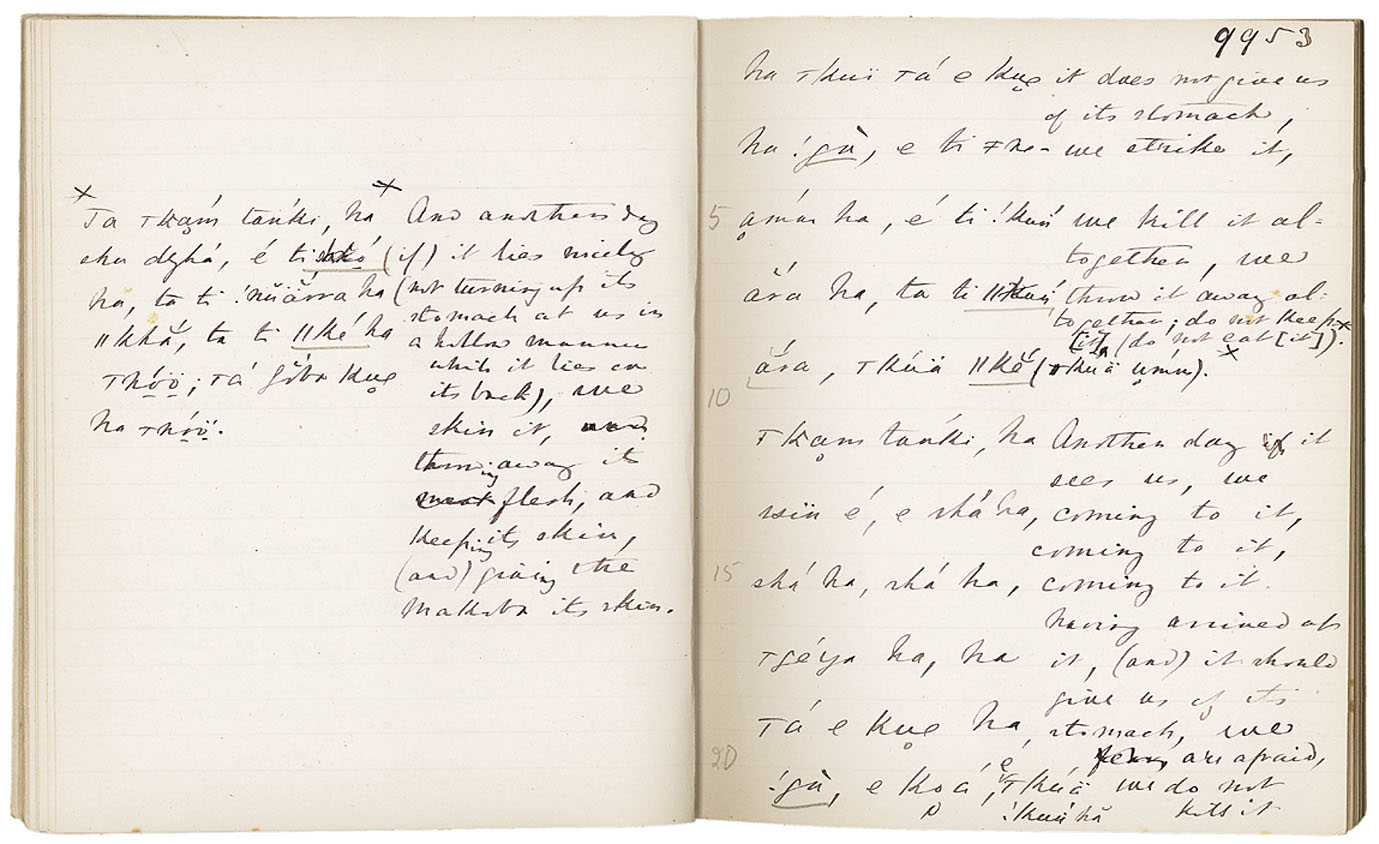 Ta ꞱKa̤ḿ tańki, ha And another day
sha dzhá, é ti (if) it lies nicely
ha, ta ti !nŭĭārra ha (not turning up its
stomach at us in
ǁkhă, ta ti ǁké ha a hollow manner
while it lies on
its back), we
ha
skin it,
throwing away its
flesh, and
keeping its skin,
(and) giving the
Makoba its skin.
9953
ha Ʇkuï Ʇá e kue it does not give us
of its stomach,
ha !gù, e ti ǂne- we strike it,
5 ha, é ti !kuń we kill it al=
together, we
ha, ta ti throw it away al=
together; do not keep
[it] (do not eat [it]).
ára, Ʇkúä ǁkĕ (Ʇkuä úmm).
10
Ʇkam tańki, ha Another day if it
sees us, we
é, e shá ha, coming to it,
coming to it,
15 shá ha, shá ha, coming to it.
having arrived at
Ʇgéya ha, ha it, (and) it should
give us of its
Ʇá e kue ha, stomach, we
20 are afraid,
!gù, e koá, é Ʇkúä we do not
!kuń hă kill it